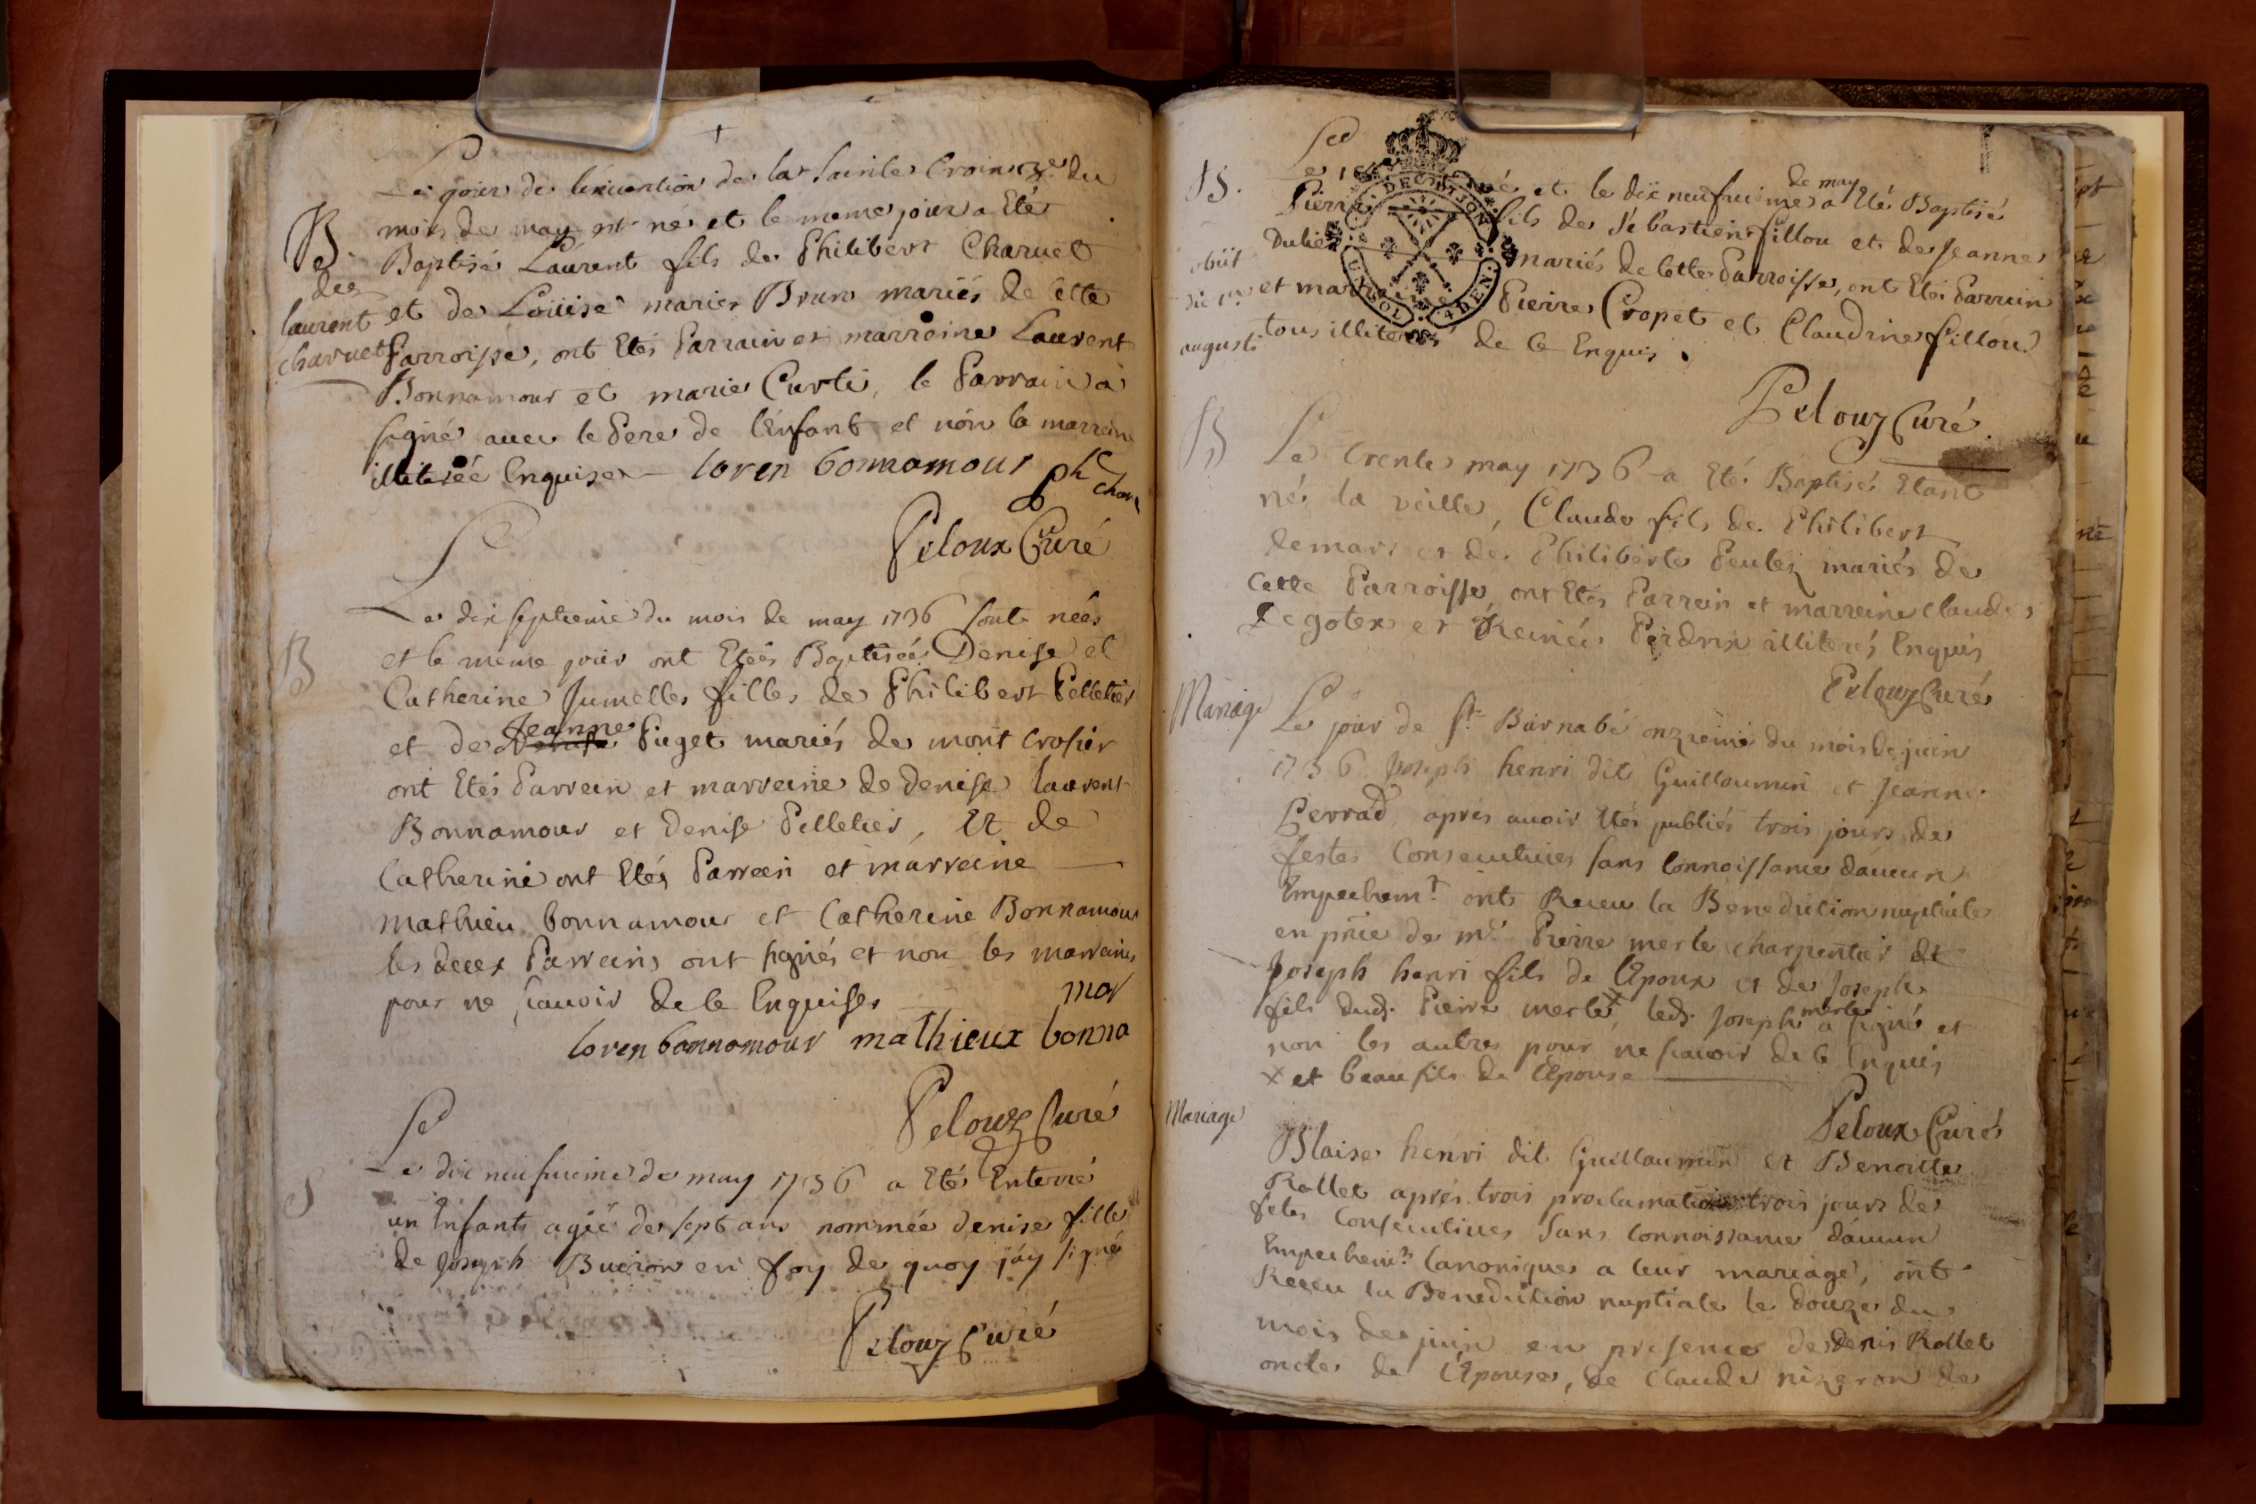 Le jour de l'exivention de la Sainte Croix 3e du
B. mois de may est né et le meme jour a Eté
de Baptisé Laurent fils de Philibert Charuet
laurent et de Louise marie Brun mariés de Cette
charuet Parroisse, ont Etés Parrain et marreine Laurent
Bonnamour et marie Curti, le Parrain a
signé avec le Pere de l'Enfant et non la marreine
illiterée Enquise loren bonnamour ph char
Peloux Curé
Le dix septieme du mois de may 1736 sont nées
B et le meme jour ont Etées Baptisées Denise et
Catherine Jumelles filles de Philibert Pelletier
et de Jeanne Puget mariés de mont crosier
ont Etés Parrein et marreine de denise laurent
Bonnamour et denise Pelletier, Et de
Catherine ont Etés Parrein et marreine
mathieu bonnamour et Catherine Bonnamour
les deux Parreins ont signés et non les marreines
pour ne scavoir de ce Enquises
mor
loren bonnamour mathieux bonna
Peloux Curé
Le dix neufvieme de may 1736 a Eté Enterré
S un Enfant agée de sept ans nommée denise fille
de Joseph Bucion en foy de quoy j'ay signé
Peloux Curé
B. Le né et le dix neufvieme de may a Eté Baptisé
Pierre fils de Sebastien fillon et de Jeanne
obiit Dulie mariés de Cette Parroisse, ont Etés Parrain
et mar Pierre Cropet et Claudine fillon
augusti tous illiterés de ce Enquis.
Peloux Curé
B Le trente may 1736 a Eté Baptisé Etant
né la veille, Claude fils de Philibert
demars et de Philiberte Peulez mariés de
Cette Parroisse, ont Etés Parrein et marreine Claude
Legotex et Reinée Perdrix illiterés Enquis
Peloux Curé
Mariage Le jour de St Barnabé onzieme du mois de juin
1736 Joseph henri dit Guillaumin et Jeanne
Perrad aprés avoir Etés publiés trois jours de
festes Consecutives sans Connoissance d'aucun
Empechemt ont Receu la Benediction nuptiale
en pnce de me Pierre merle charpentier et
Joseph henri fils de l'Epoux et de Joseph
fils dud. Pierre merle x led. Joseph merle a signé et
non les autres pour ne scavoir de ce Enquis
x et beaufils de l'Epouse
Peloux Curé
Mariage Blaise henri dit Guillaumin et Benoitte
Rollet aprés trois proclamations trois jours de
fetes Consecutives sans Connoissance d'aucun
Empechemt Canoniques a leur mariage, ont
Receu la Benediction nuptiale le douze du
mois de juin en presence de denis Rollet
oncle de l'Epouse, de Claude nizeron de